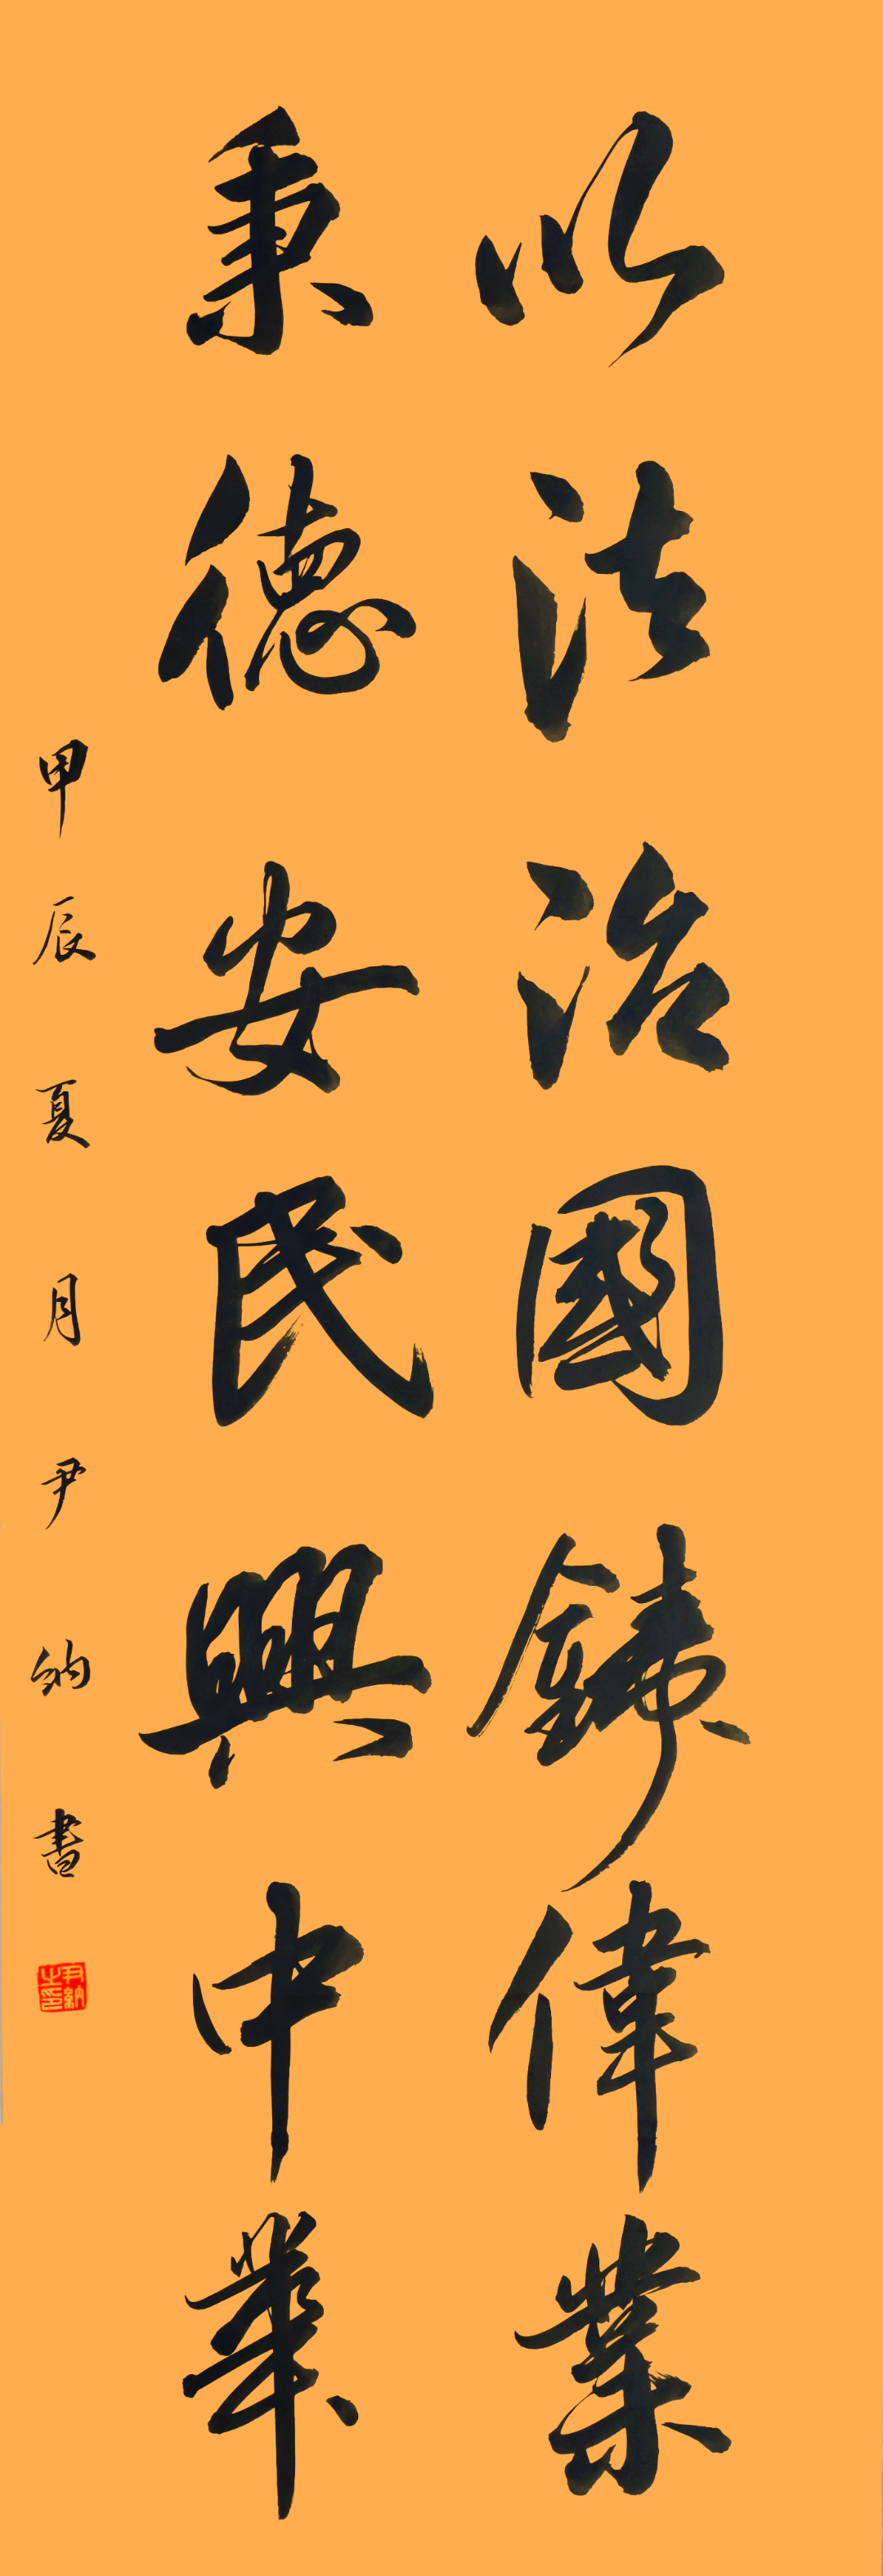 以法治國鑄偉業
秉德安民興中華
甲辰夏月尹納書
尹納之印